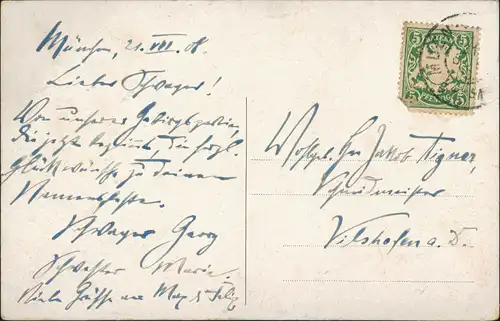 München, 21. VII. 08.
Lieber Schwager!
Von unserer Gebirgspartie,
die jetzt beginnt, die herzl.
Glückwünsche zu deinem
Namensfeste.
Schwager Georg
Schwester Marie.
Viele Grüße an Max & Felix
5 5
PFENNIG
5 5
Wohlgb. Hn Jakob Aigner,
Schneidmeister
Vilshofen a. D.